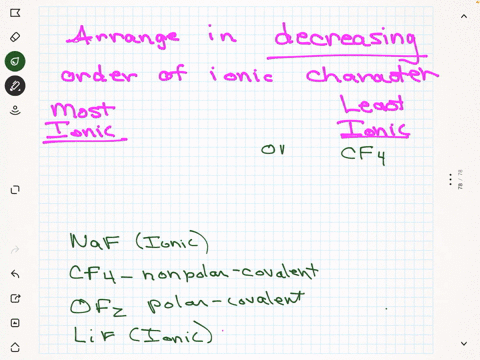 Arrange in decreasing
order of ionic character
Most
Ionic
Least
Ionic
CF4
NaF (Ionic)
CF4 - nonpolar-covalent
OF2 polar-covalent
LiF (Ionic)
78 / 78